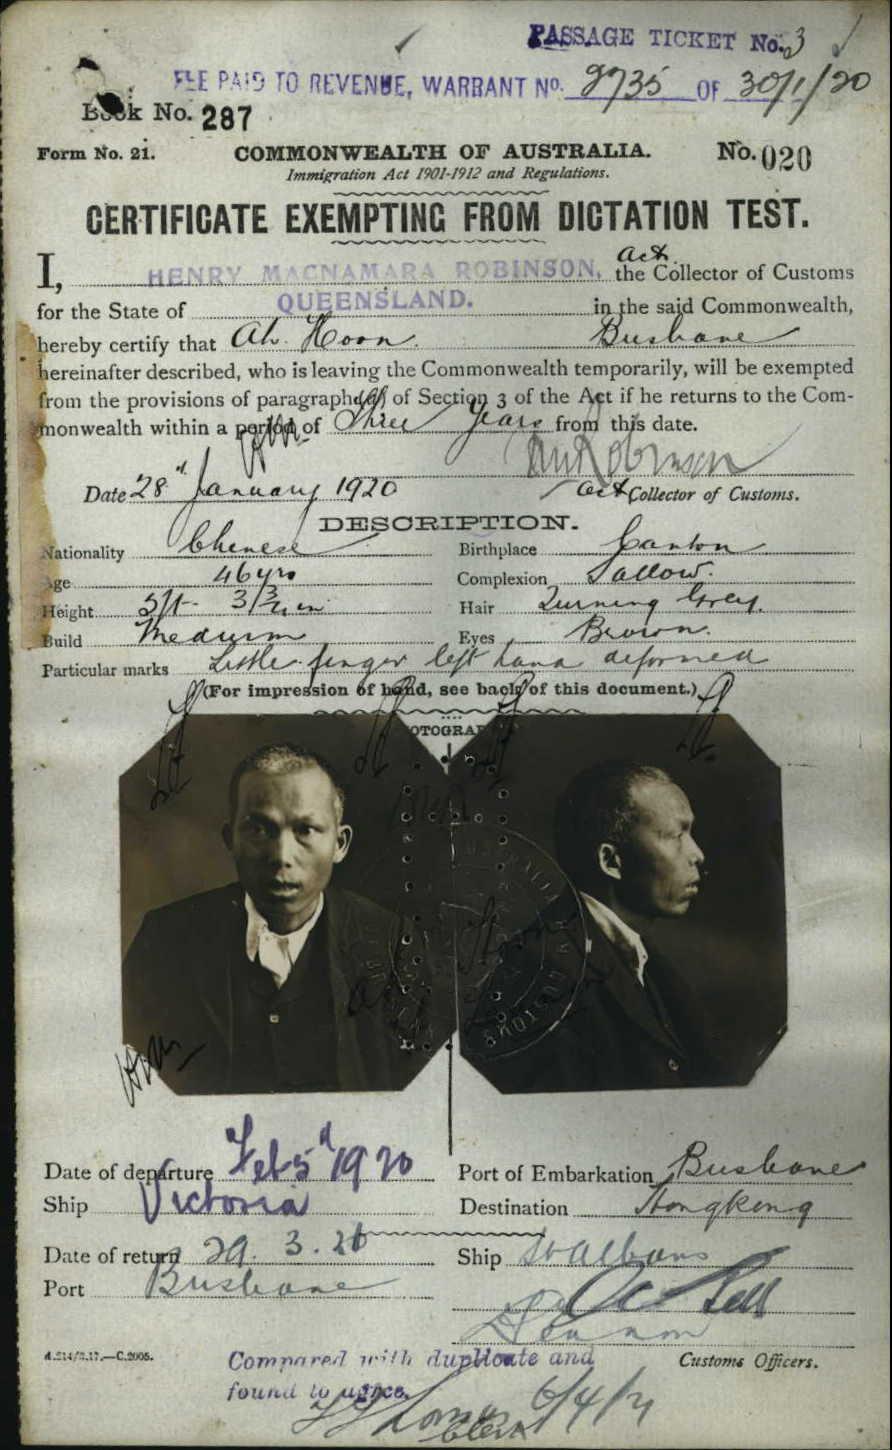 PASSAGE TICKET No. 3
FEE PAID TO REVENUE, WARRANT No. 2735 OF 30/1/20
Book No. 287
Form No. 21. COMMONWEALTH OF AUSTRALIA. No. 020
Immigration Act 1901-1912 and Regulations.
CERTIFICATE EXEMPTING FROM DICTATION TEST.
I, HENRY MACNAMARA ROBINSON, act. the Collector of Customs
for the State of QUEENSLAND. in the said Commonwealth,
hereby certify that Ah Hoon Brisbane
hereinafter described, who is leaving the Commonwealth temporarily, will be exempted
from the provisions of paragraph (a) of Section 3 of the Act if he returns to the Com-
monwealth within a period of Three Years from this date.
Date 28 January 1920 act Collector of Customs.
DESCRIPTION.
Nationality Chinese Birthplace Canton
Age 46 yrs Complexion Sallow.
Height 5ft. 3 in Hair Turning Grey.
Build Medium Eyes Brown.
Particular marks Little finger left hand deformed
(For impression of hand, see back of this document.)
PHOTOGRAPHS
Date of departure Feb 5 1920 Port of Embarkation Brisbane
Ship Victoria Destination Hongkong
Date of return 29. 3. Ship St Albans
Port Brisbane
A.214/3.17.—C.2005. Customs Officers.
Compared with duplicate and
found to agree.
Clerk 6/4/21